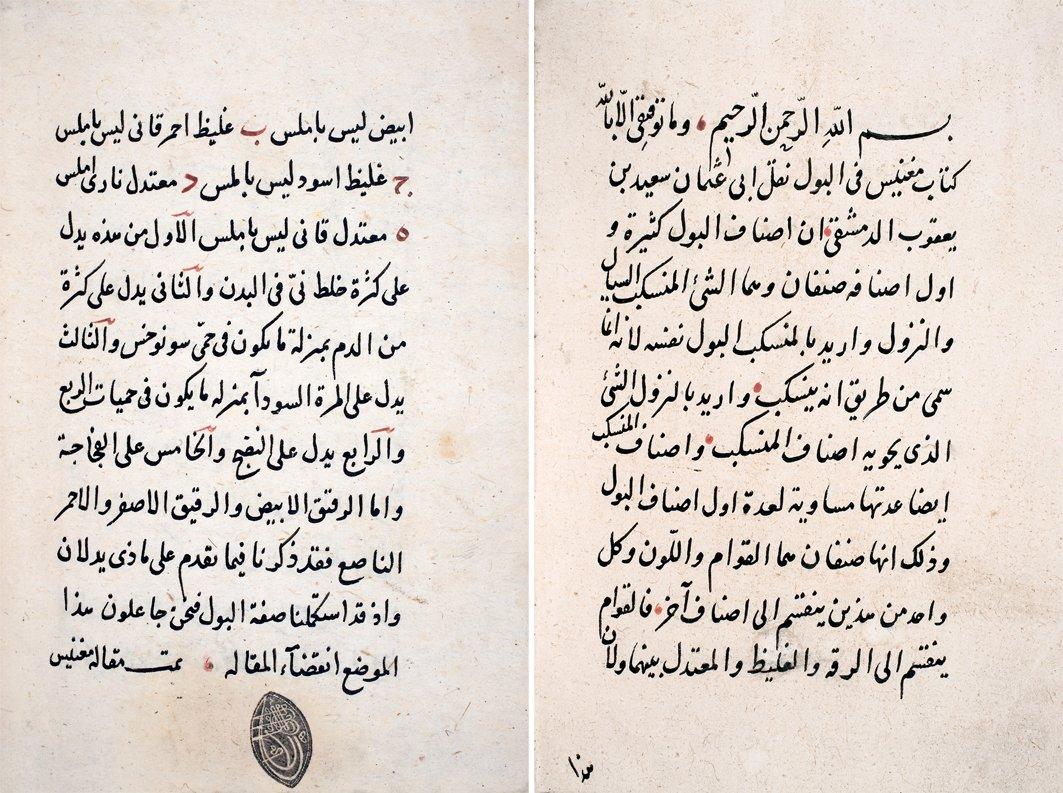 بسم الله الرحمن الرحيم وما توفيقي الا بالله
كتاب مغنيس في البول نقل ابي عثمان سعيد بن
يعقوب الدمشقي ان اصناف البول كثيرة و
اول اصنافه صنفان وهما الشئ المنسكب السيال
والنزول واريد بالمنسكب البول نفسه لانه انما
سمى من طريق انه ينسكب واريد بالنزول الشئ
الذى يحويه اصناف المنسكب واصناف المنسكب
ايضا عدتها مساوية لعدة اول اصناف البول
وذلك انها صنفان هما القوام واللون وكل
واحد من هذين ينقسم الى اصناف آخر فالقوام
ينقسم الى الرقه والغليظ والمعتدل بينهما ولان
هذا
ابيض ليس باملس ب غليظ احمر قانى ليس باملس
ج غليظ اسود ليس بالمس د معتدل نارى املس
ه معتدل قانى ليس باملس الآول من هذه يدل
على كثرة خلط نىّ فى البدن والثانى يدل على كثرة
من الدم بمنزلة ما يكون فى حمّى سونوخس والثالث
يدل على المرة السودآ بمنزله ما يكون فى حميات الربع
والرابع يدل على النضج والخامس على الفجاجة
واما الرقيق الابيض والرقيق الاصفر والاحمر
الناصع فقد ذكرنا فيما تقدم على ماذى يدلان
واذ قد استكملنا صفة البول فنحن جاعلون هذا
الموضع انقضآء المقاله تمت مقالة مغنيس